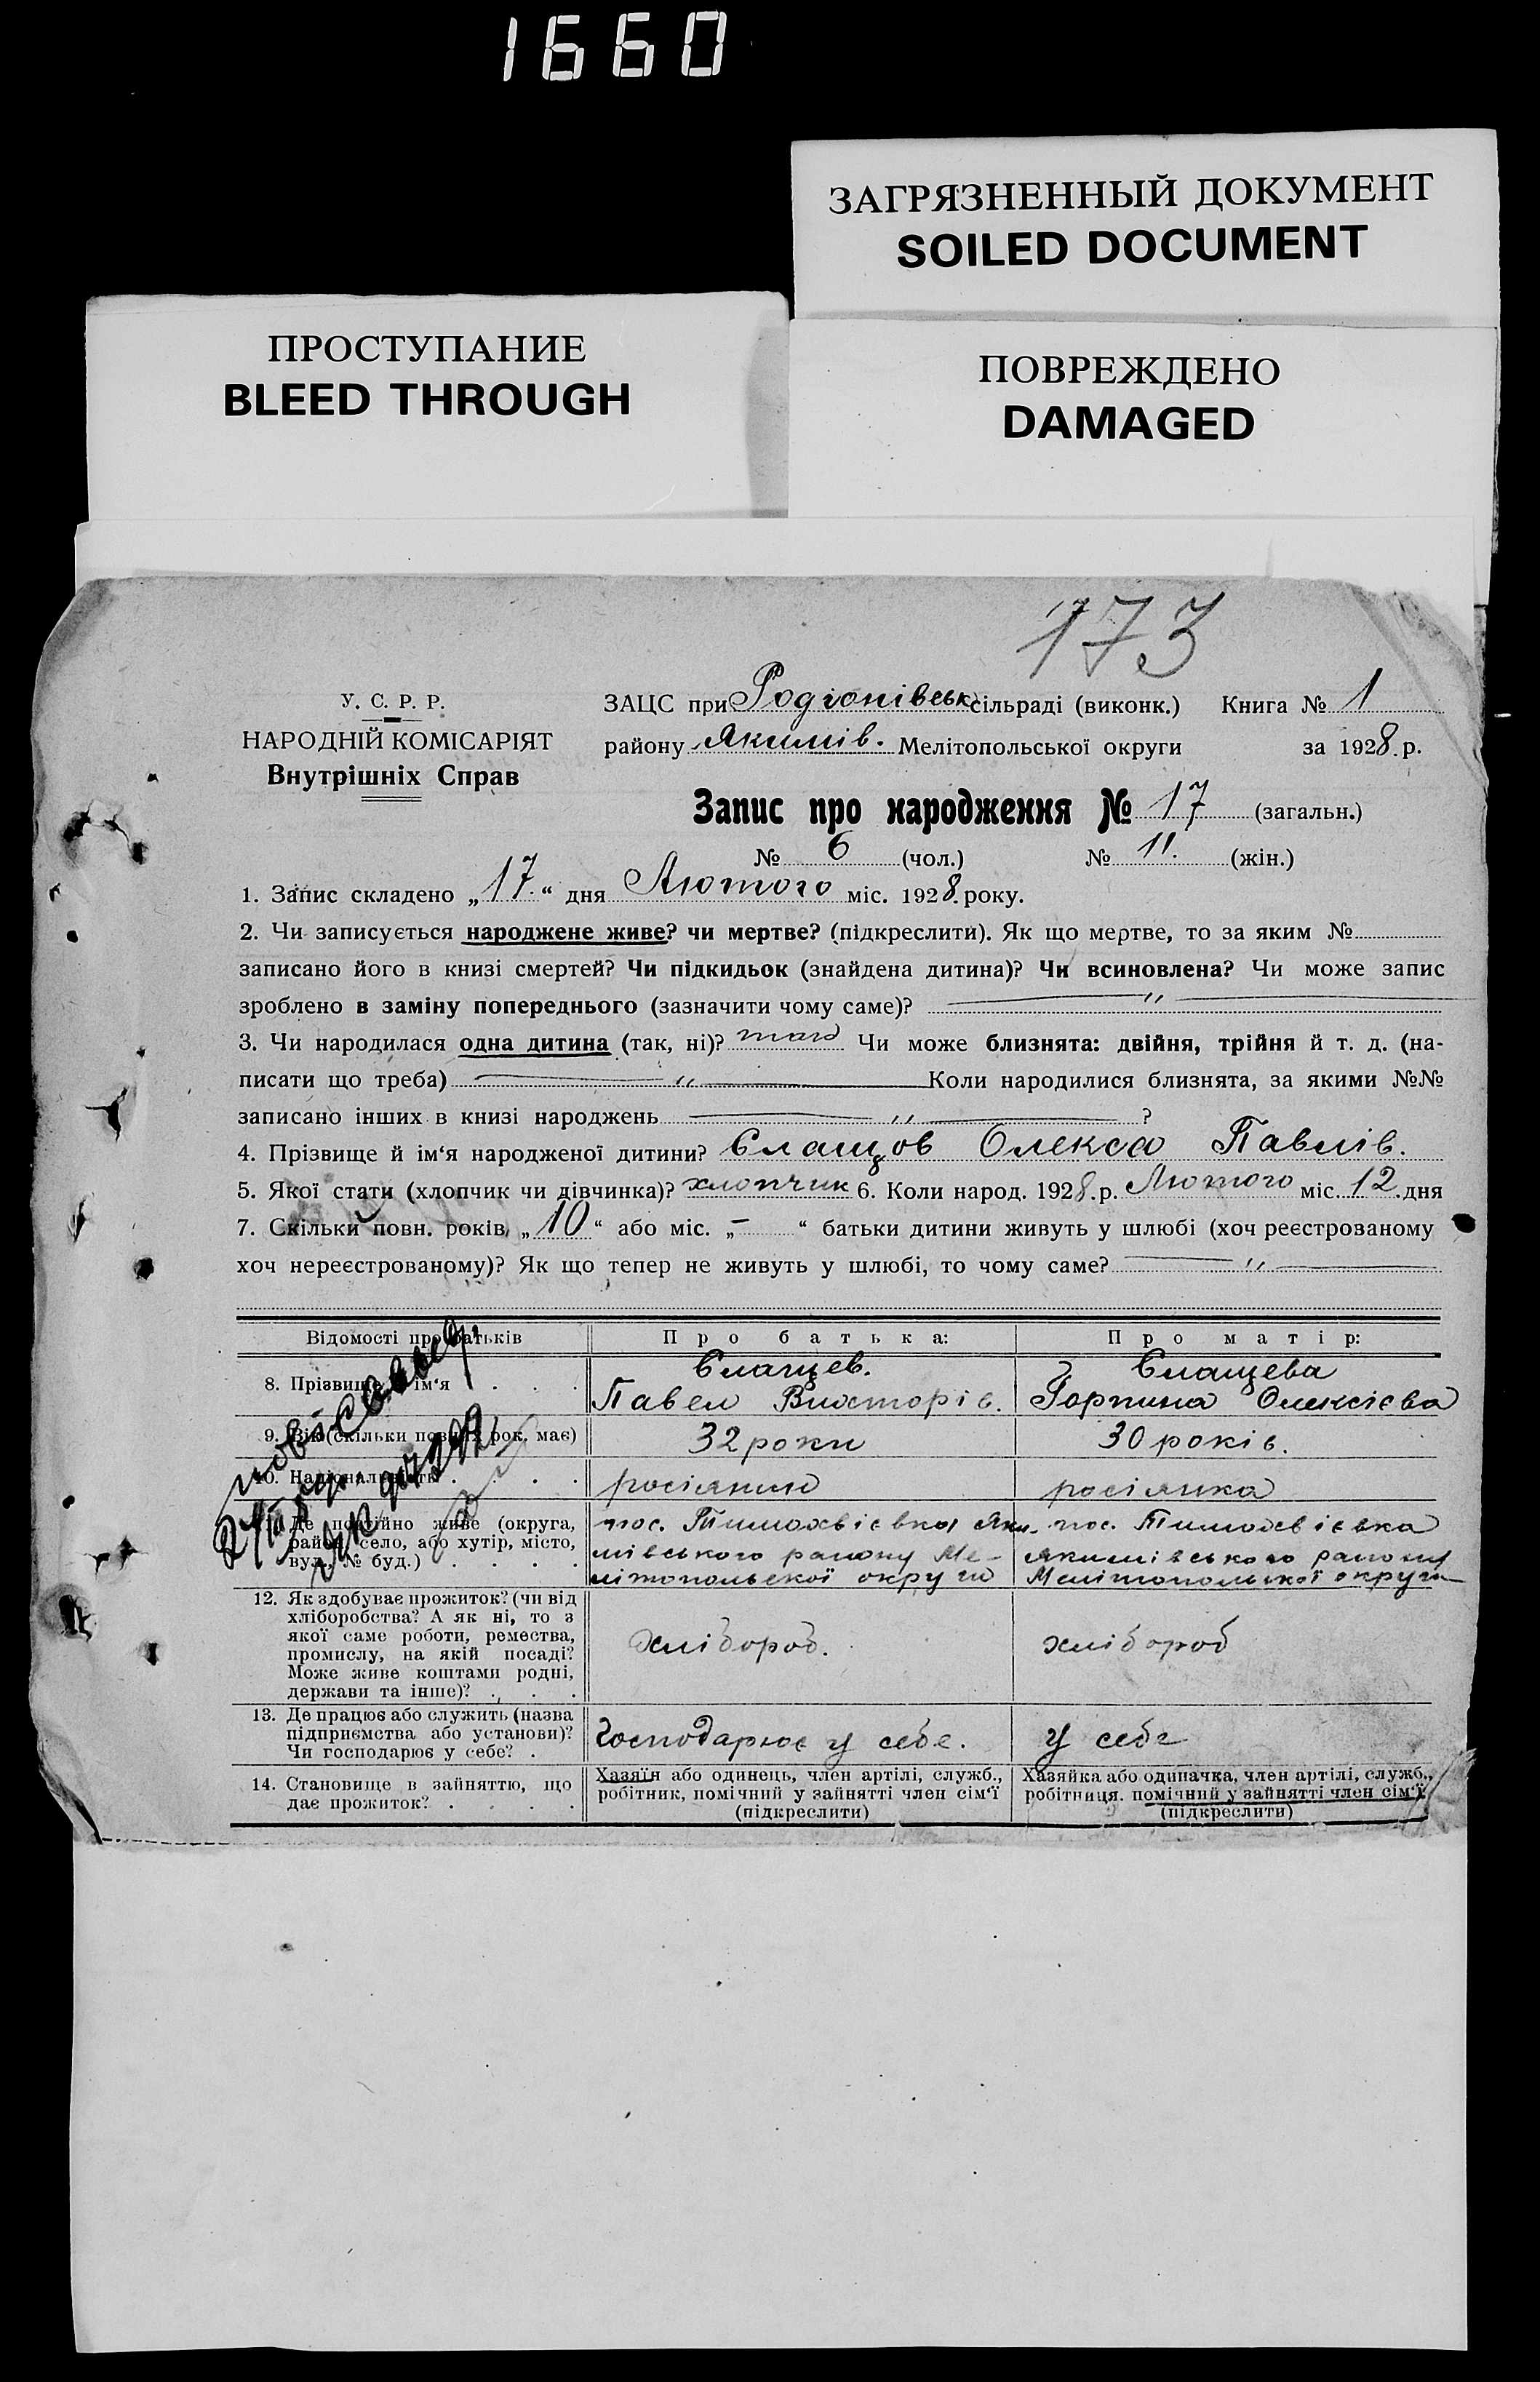 1660
ЗАГРЯЗНЕННЫЙ ДОКУМЕНТ
SOILED DOCUMENT
ПРОСТУПАНИЕ
BLEED THROUGH
ПОВРЕЖДЕНО
DAMAGED
173
У. С. Р. Р.
НАРОДНІЙ КОМІСАРІЯТ
Внутрішніх Справ
ЗАЦС при Родіонівськ сільраді (виконк.) Книга № 1
району Якимів. Мелітопольської округи за 1928.р.
Запис про народження № 17 (загальн.)
№ 6 (чол.) № 11. (жін.)
1. Запис складено „17.“ дня Лютого міс. 1928.року.
2. Чи записується народжене живе? чи мертве? (підкреслити). Як що мертве, то за яким №
записано його в книзі смертей? Чи підкидьок (знайдена дитина)? Чи всиновлена? Чи може запис
зроблено в заміну попереднього (зазначити чому саме)? — „ —
3. Чи народилася одна дитина (так, ні)? так Чи може близнята: двійня, трійня й т. д. (на-
писати що треба) — „ — Коли народилися близнята, за якими №№
записано інших в книзі народжень — „ — ?
4. Прізвище й ім‘я народженої дитини? Єлащов Олекса Павлів.
5. Якої стати (хлопчик чи дівчинка)? хлопчик 6. Коли народ. 1928.р. Лютого міс. 12.дня
7. Скільки повн. років „10“ або міс. „–“ батьки дитини живуть у шлюбі (хоч реєстрованому
хоч нереєстрованому)? Як що тепер не живуть у шлюбі, то чому саме? — „ —
Відомості про батьків
Про батька:
Про матір:
8. Прізвище й ім‘я . . .
Єлащев.
Павел Викторів.
Єлащева
Горпина Олексієва
9. Вік (скільки повних рок. має)
32 роки
30 років.
10. Національність . . . .
росіянин
росіянка
Де постійно живе (округа,
район, село, або хутір, місто,
вул., № буд.) . . . .
пос. Тимохвієвка Яки-
мівського району Ме-
літопольської округи
пос. Тимохвієвка
Якимівського району
Мелітопольської округи
12. Як здобуває прожиток? (чи від
хліборобства? А як ні, то з
якої саме роботи, ремества,
промислу, на якій посаді?
Може живе коштами родні,
держави та інше)? . . .
Хлібороб.
хлібороб
13. Де працює або служить (назва
підприємства або установи)?
Чи господарює у себе? .
Господарює у себе.
у себе
14. Становище в зайняттю, що
дає прожиток? . . . .
Хазяїн або одинець, член артілі, служб.,
робітник, помічний у зайнятті член сім‘ї
(підкреслити)
Хазяйка або одиначка, член артілі, служб.,
робітниця. помічний у зайнятті член сім‘ї
(підкреслити)